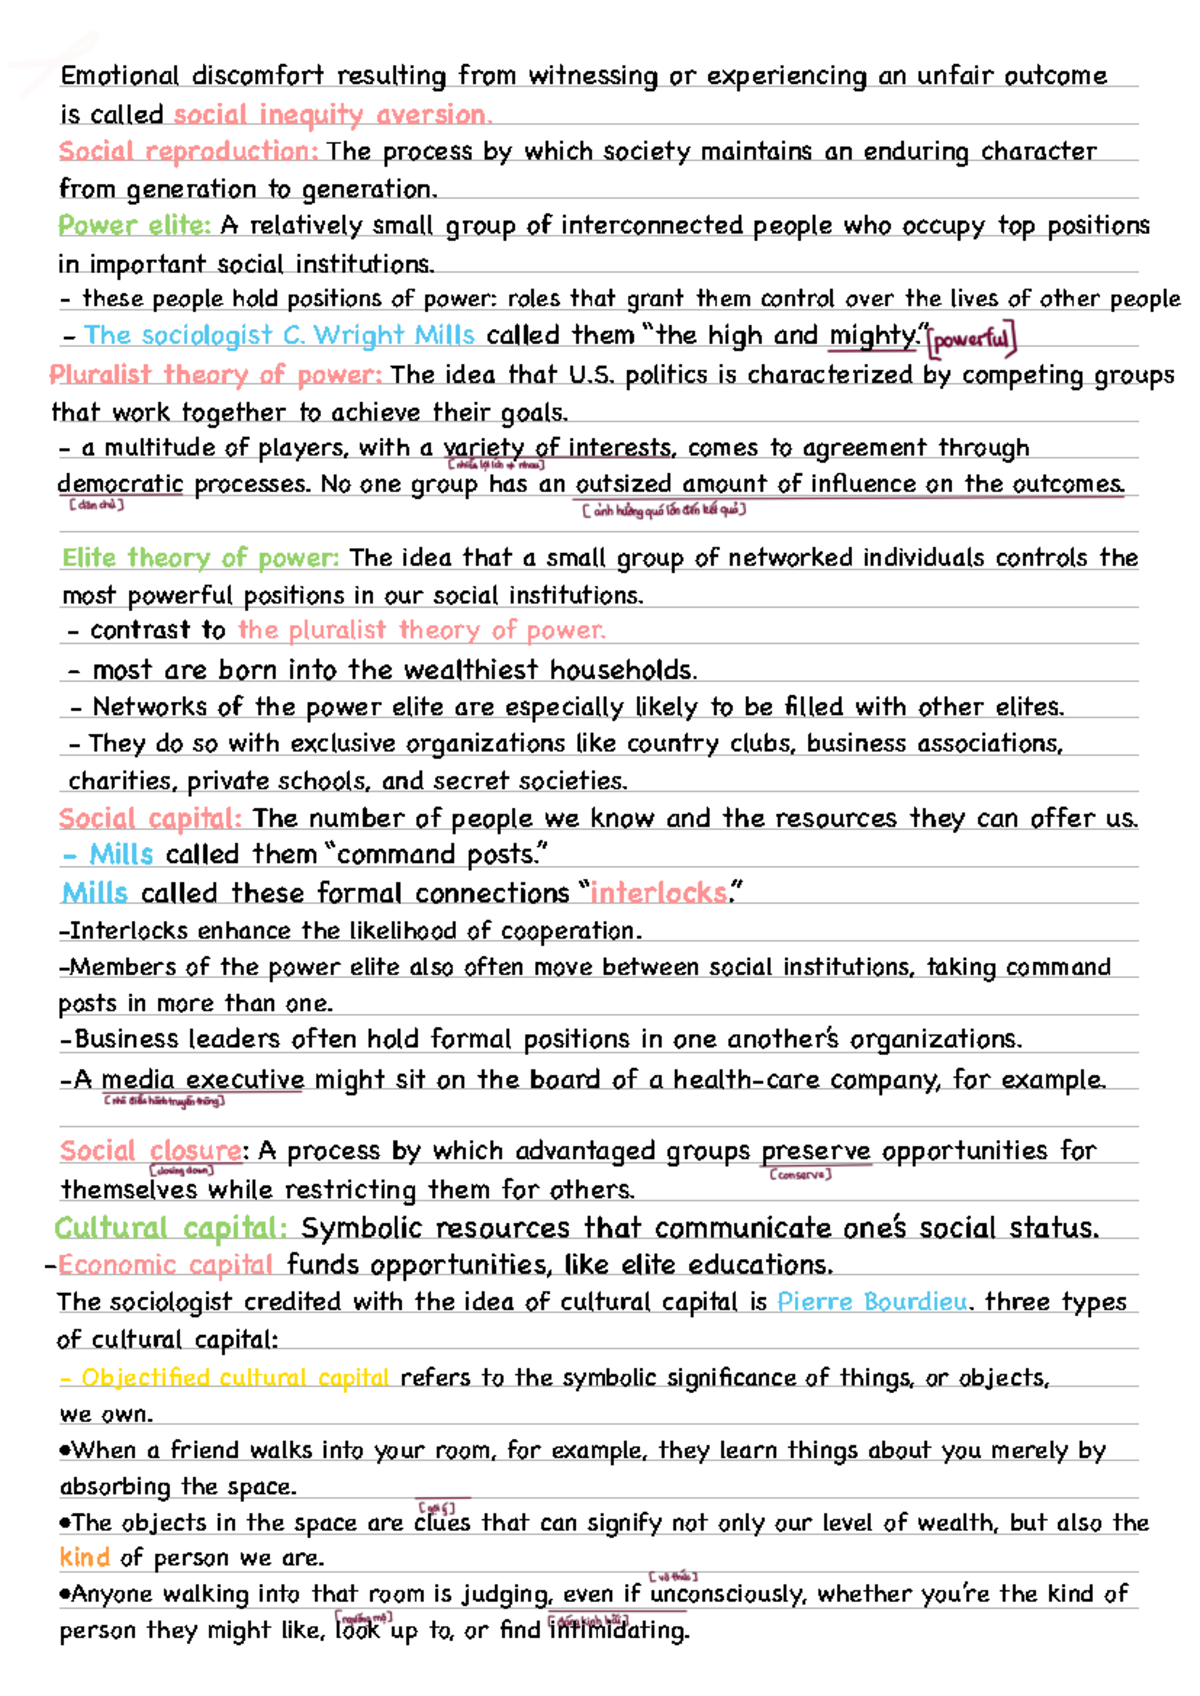 Emotional discomfort resulting from witnessing or experiencing an unfair outcome
is called social inequity aversion.
Social reproduction: The process by which society maintains an enduring character
from generation to generation.
Power elite: A relatively small group of interconnected people who occupy top positions
in important social institutions.
- these people hold positions of power: roles that grant them control over the lives of other people
- The sociologist C. Wright Mills called them "the high and mighty." [powerful]
Pluralist theory of power: The idea that U.S. politics is characterized by competing groups
that work together to achieve their goals.
- a multitude of players, with a variety of interests, comes to agreement through
[nhiều lợi ích ≠ nhau]
democratic processes. No one group has an outsized amount of influence on the outcomes.
[dân chủ] [ảnh hưởng quá lớn đến kết quả]
Elite theory of power: The idea that a small group of networked individuals controls the
most powerful positions in our social institutions.
- contrast to the pluralist theory of power.
- most are born into the wealthiest households.
- Networks of the power elite are especially likely to be filled with other elites.
- They do so with exclusive organizations like country clubs, business associations,
charities, private schools, and secret societies.
Social capital: The number of people we know and the resources they can offer us.
- Mills called them "command posts."
Mills called these formal connections "interlocks."
-Interlocks enhance the likelihood of cooperation.
-Members of the power elite also often move between social institutions, taking command
posts in more than one.
-Business leaders often hold formal positions in one another's organizations.
-A media executive might sit on the board of a health-care company, for example.
[nhà điều hành truyền thông]
Social closure: A process by which advantaged groups preserve opportunities for
[closing down] [conserve]
themselves while restricting them for others.
Cultural capital: Symbolic resources that communicate one's social status.
-Economic capital funds opportunities, like elite educations.
The sociologist credited with the idea of cultural capital is Pierre Bourdieu. three types
of cultural capital:
- Objectified cultural capital refers to the symbolic significance of things, or objects,
we own.
•When a friend walks into your room, for example, they learn things about you merely by
absorbing the space.
[gợi ý]
•The objects in the space are clues that can signify not only our level of wealth, but also the
kind of person we are.
[vô thức]
•Anyone walking into that room is judging, even if unconsciously, whether you're the kind of
[ngưỡng mộ] [đáng kinh hãi]
person they might like, look up to, or find intimidating.